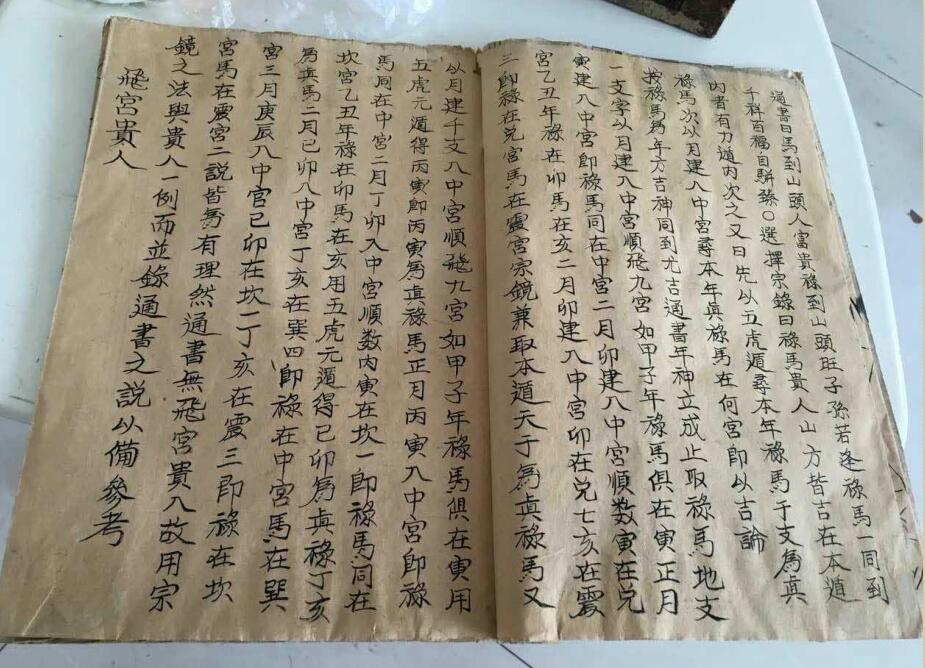 通書曰馬到山頭人富貴祿到山頭旺子孫若逢祿馬一同到
千祥百福自駢臻〇選擇宗錄曰祿馬貴人山方皆吉在本遁
内者有力遁内次之又曰先以五虎遁尋本年祿馬干支為真
祿馬次以月建入中宮尋本年真祿馬在何宮即以吉論
按祿馬為年方吉神同到尤吉通書年神立成止取祿馬地支
一支字以月建入中宮順飛九宮如甲子年祿馬俱在寅正月
寅建入中宮即祿馬同在中宮二月卯建入中宮順数寅在兑
宮乙丑年祿在卯馬在亥二月卯建入中宮卯在兑七亥在震
三即祿在兑宮馬在震宮宗鏡兼取本遁天干為真祿馬又
以月建干支入中宮順飛九宮如甲子年祿馬俱在寅用
五虎元遁得丙寅即丙寅為真祿馬正月丙寅入中宮即祿
馬同在中宮二月丁卯入中宮順数丙寅在坎一即祿馬同在
坎宮乙丑年祿在卯馬在亥用五虎元遁得己卯為真祿丁亥
為真馬二月己卯入中宮丁亥在巽四即祿在中宮馬在巽
宮三月庚辰入中宮己卯在坎一丁亥在震三即祿在坎
宮馬在震宮二説皆為有理然通書無飛宮貴人故用宗
鏡之法與貴人一例而並錄通書之説以備參考
飛宮貴人